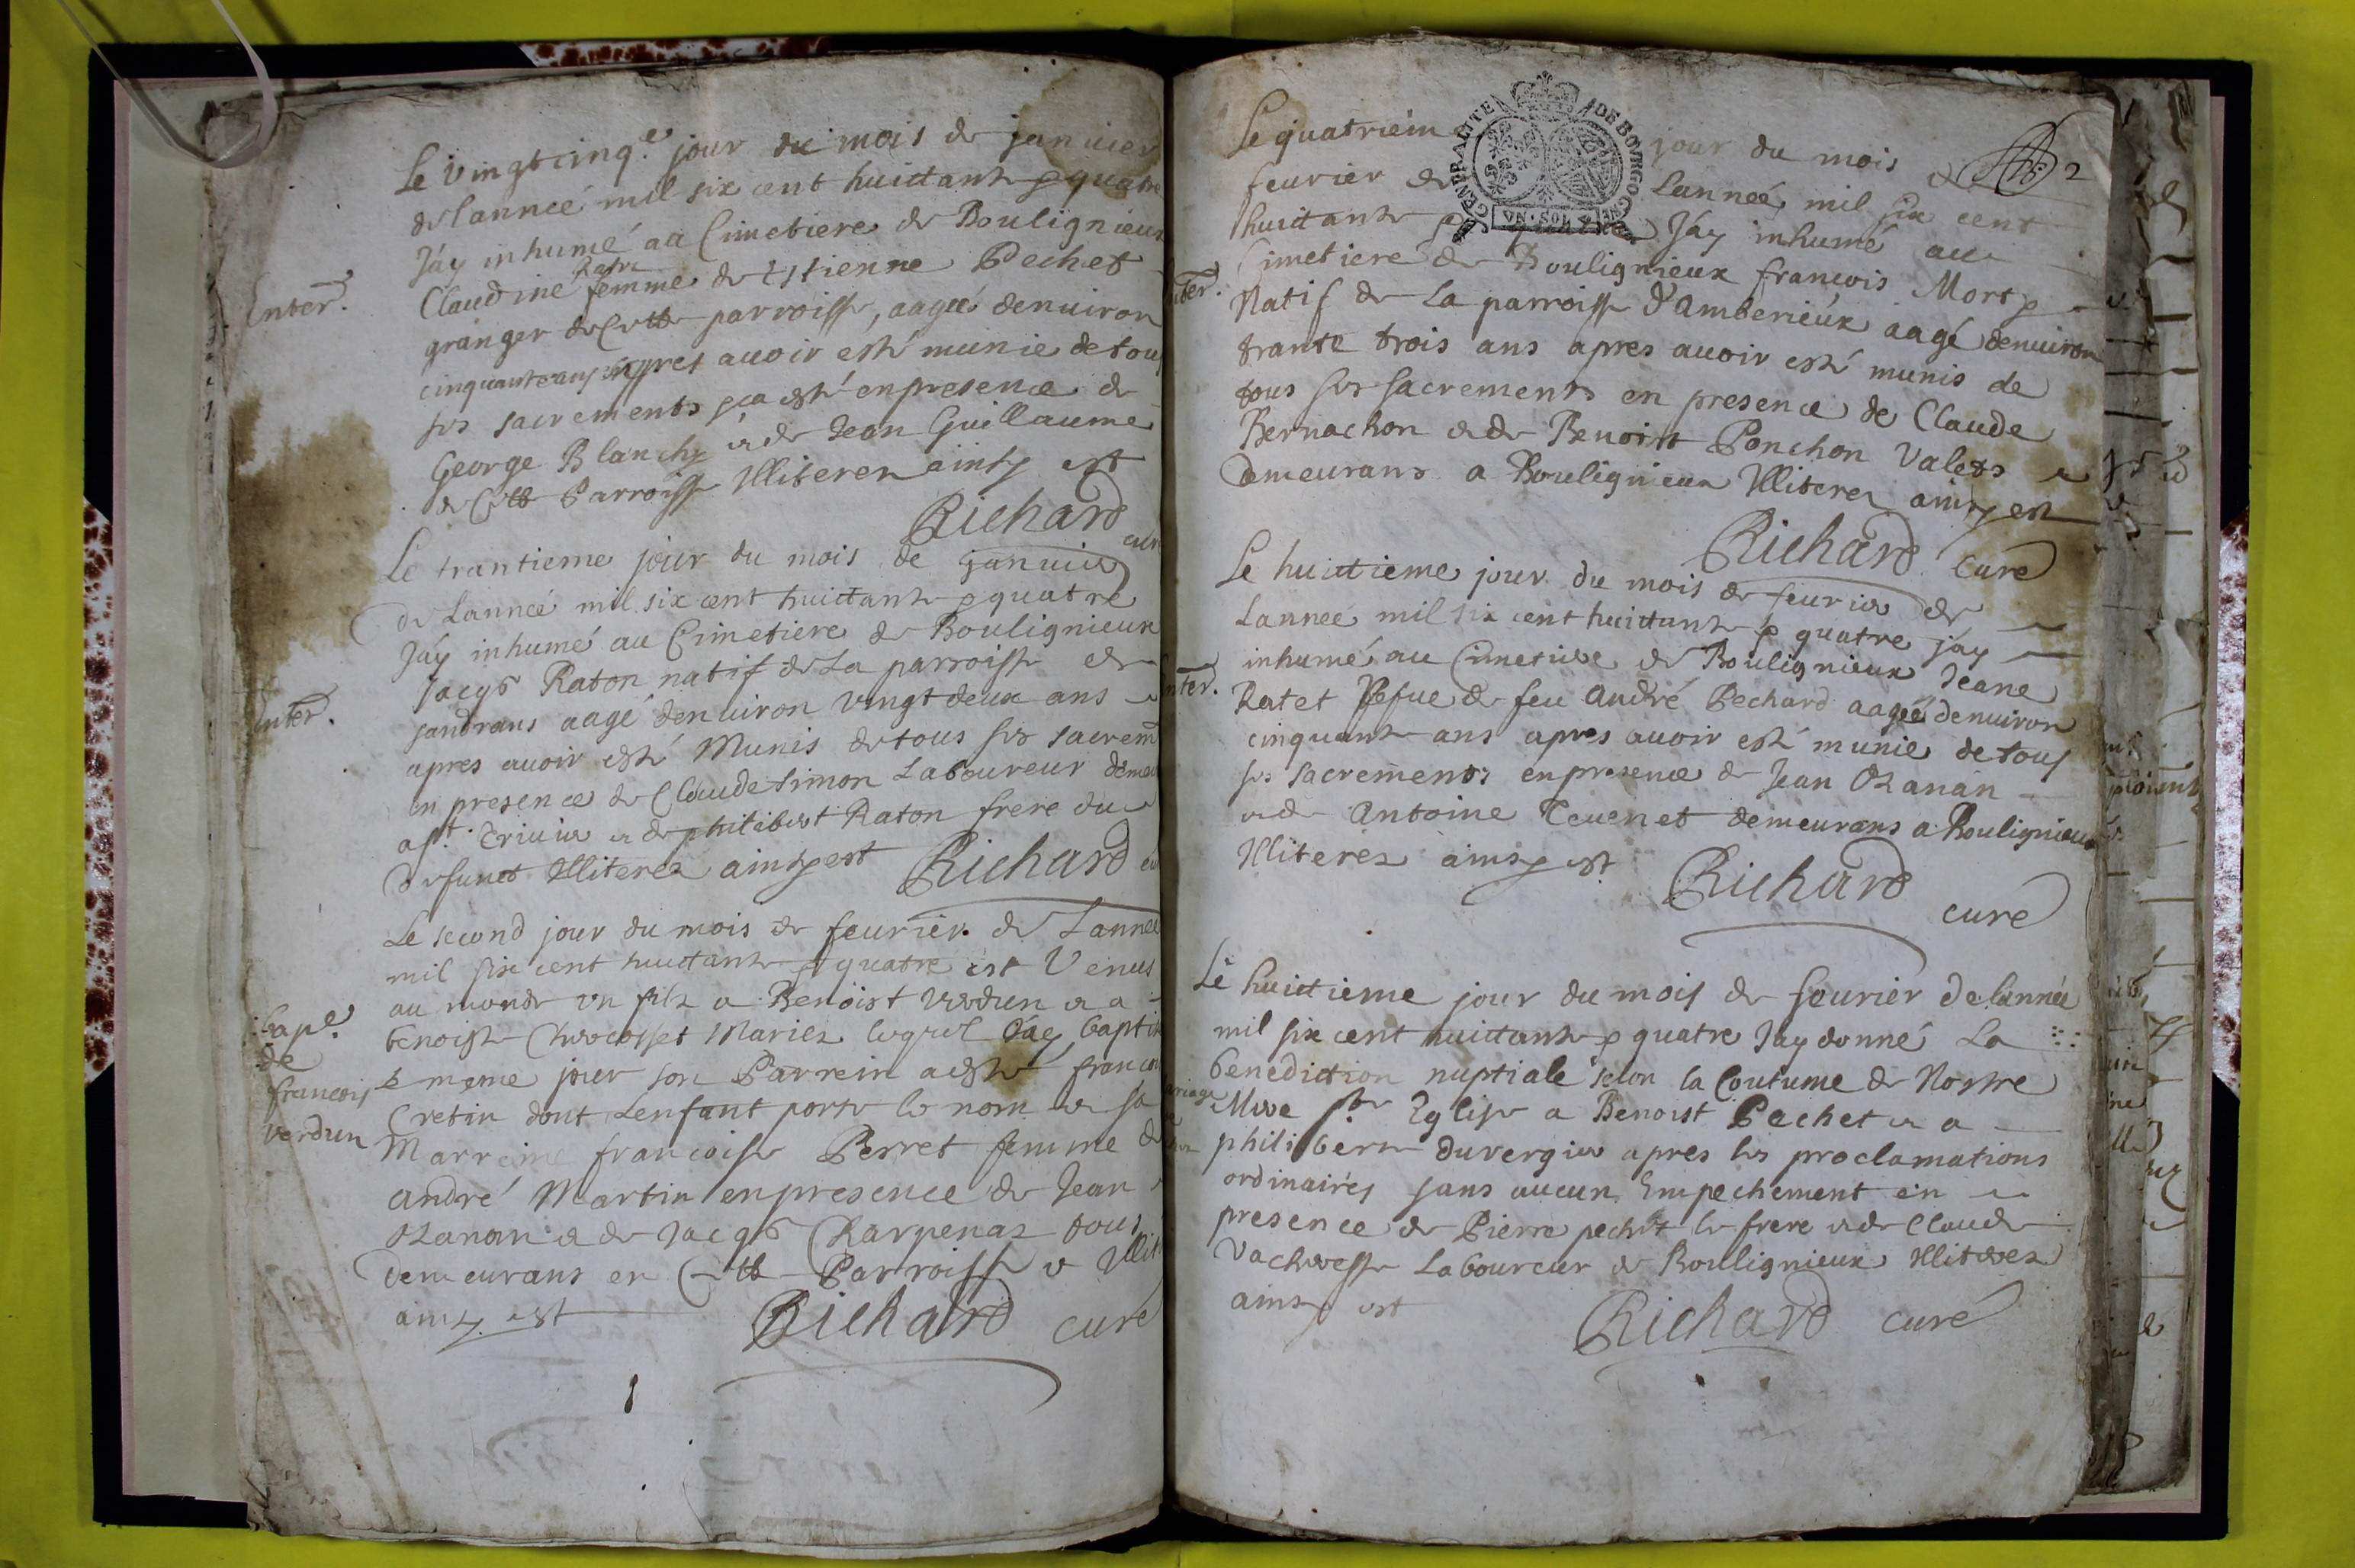 Le vingt cinq.e jour du mois de januier
de lanneé mil six cent huictante & quatre
Jáy inhumé au Cimetiere de Boulignieux
Claudine Ratri femme de Estienne Pechet
Enter.
granger de Cette parroisse, aageé denuiron
cinquante ans apres auoir esté munie de tous
ses sacrements ça esté en presence de
George Blanchy & de Jean Guillaume
de Cette Parroisse Illiterez ainsy est
Richard curé
Le trantieme jour du mois de januier
de Lanneé mil six cent huictante & quatre
Jáy inhumé au Cimetiere de Boulignieux
Jacqs Raton natif de La parroisse de
Enter.
sandrans aagé denuiron vingt deux ans
apres auoir esté Munis de tous ses sacrem
en presence de Claude Simon Laboureur
a st. Triuier & de philibert Raton frere du
defunct Illiterez ainsy est Richard
Le second jour du mois de feurier de Lanneé
mil six cent huictante & quatre est Venus
au monde vn filz a Benoist Verdun & a
Bap.e
benoiste Marièz lequel Jáy baptisé
de
le meme jour son Parrein a esté francois
francois
Cretin dont Lenfant porte le nom & sa
verdun
Marreine francoise Perret femme de
André Martin en presence de Jean
Ozanon & de Jacqs Charpenaz tous
demeurans en Cette Parroisse &
ainsy est Richard curé
GENERALITE DE BOVRGOGNE
VN SOL
2
Le quatriem jour du mois de
feurier de Lanneé mil six cent
huictante & quatre Jáy inhumé au
Cimetiere de Boulignieux francois Morty
Enter.
Natif de La parroisse d'Amberieux aagé denuiron
trante trois ans apres auoir esté munis de
tous ses sacrements en presence de Claude
Bernachon & de Benoist Ponchon Valets
demeurans a Boulignieux Illiterez ainsy est
Richard Curé
Le huictieme jour du mois de feurier de
Lanneé mil six cent huictante & quatre jáy
inhumé au Cimetiere de Boulignieux Jeane
Enter.
Ratet Vefue de feu André Pechard aageé denuiron
cinquante ans apres auoir esté munie de tous
ses sacrements en presence de Jean Ozanàn
& de Antoine Teuenet demeurans a Boulignieux
Illiterez ainsy est
Richard
curé
Le huictieme jour du mois de feurier de lanneé
mil six cent huictante & quatre Jay donné La
benediction nuptiale selon la Coutume de Nostre
Mere ste Eglise a Benoist Pechet & a
philiberte Duvergier apres les proclamations
ordinaires sans aucun Empechement en
presence de Pierre pechet le frere & de Claude
Vacheresse Laboureur de Boulignieux Illiterez
ainsy est
Richard curé